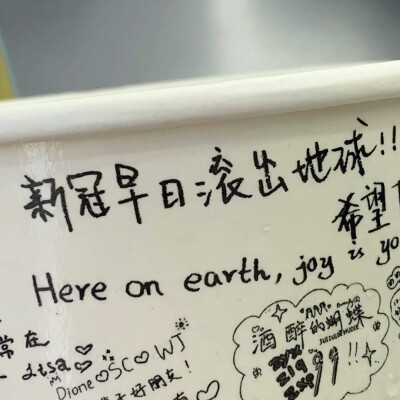 新冠早日滚出地球!!
希望
Here on earth, joy is yo
常在
Lisa
Dione SC WJ
好朋友!
酒醉的蝴蝶